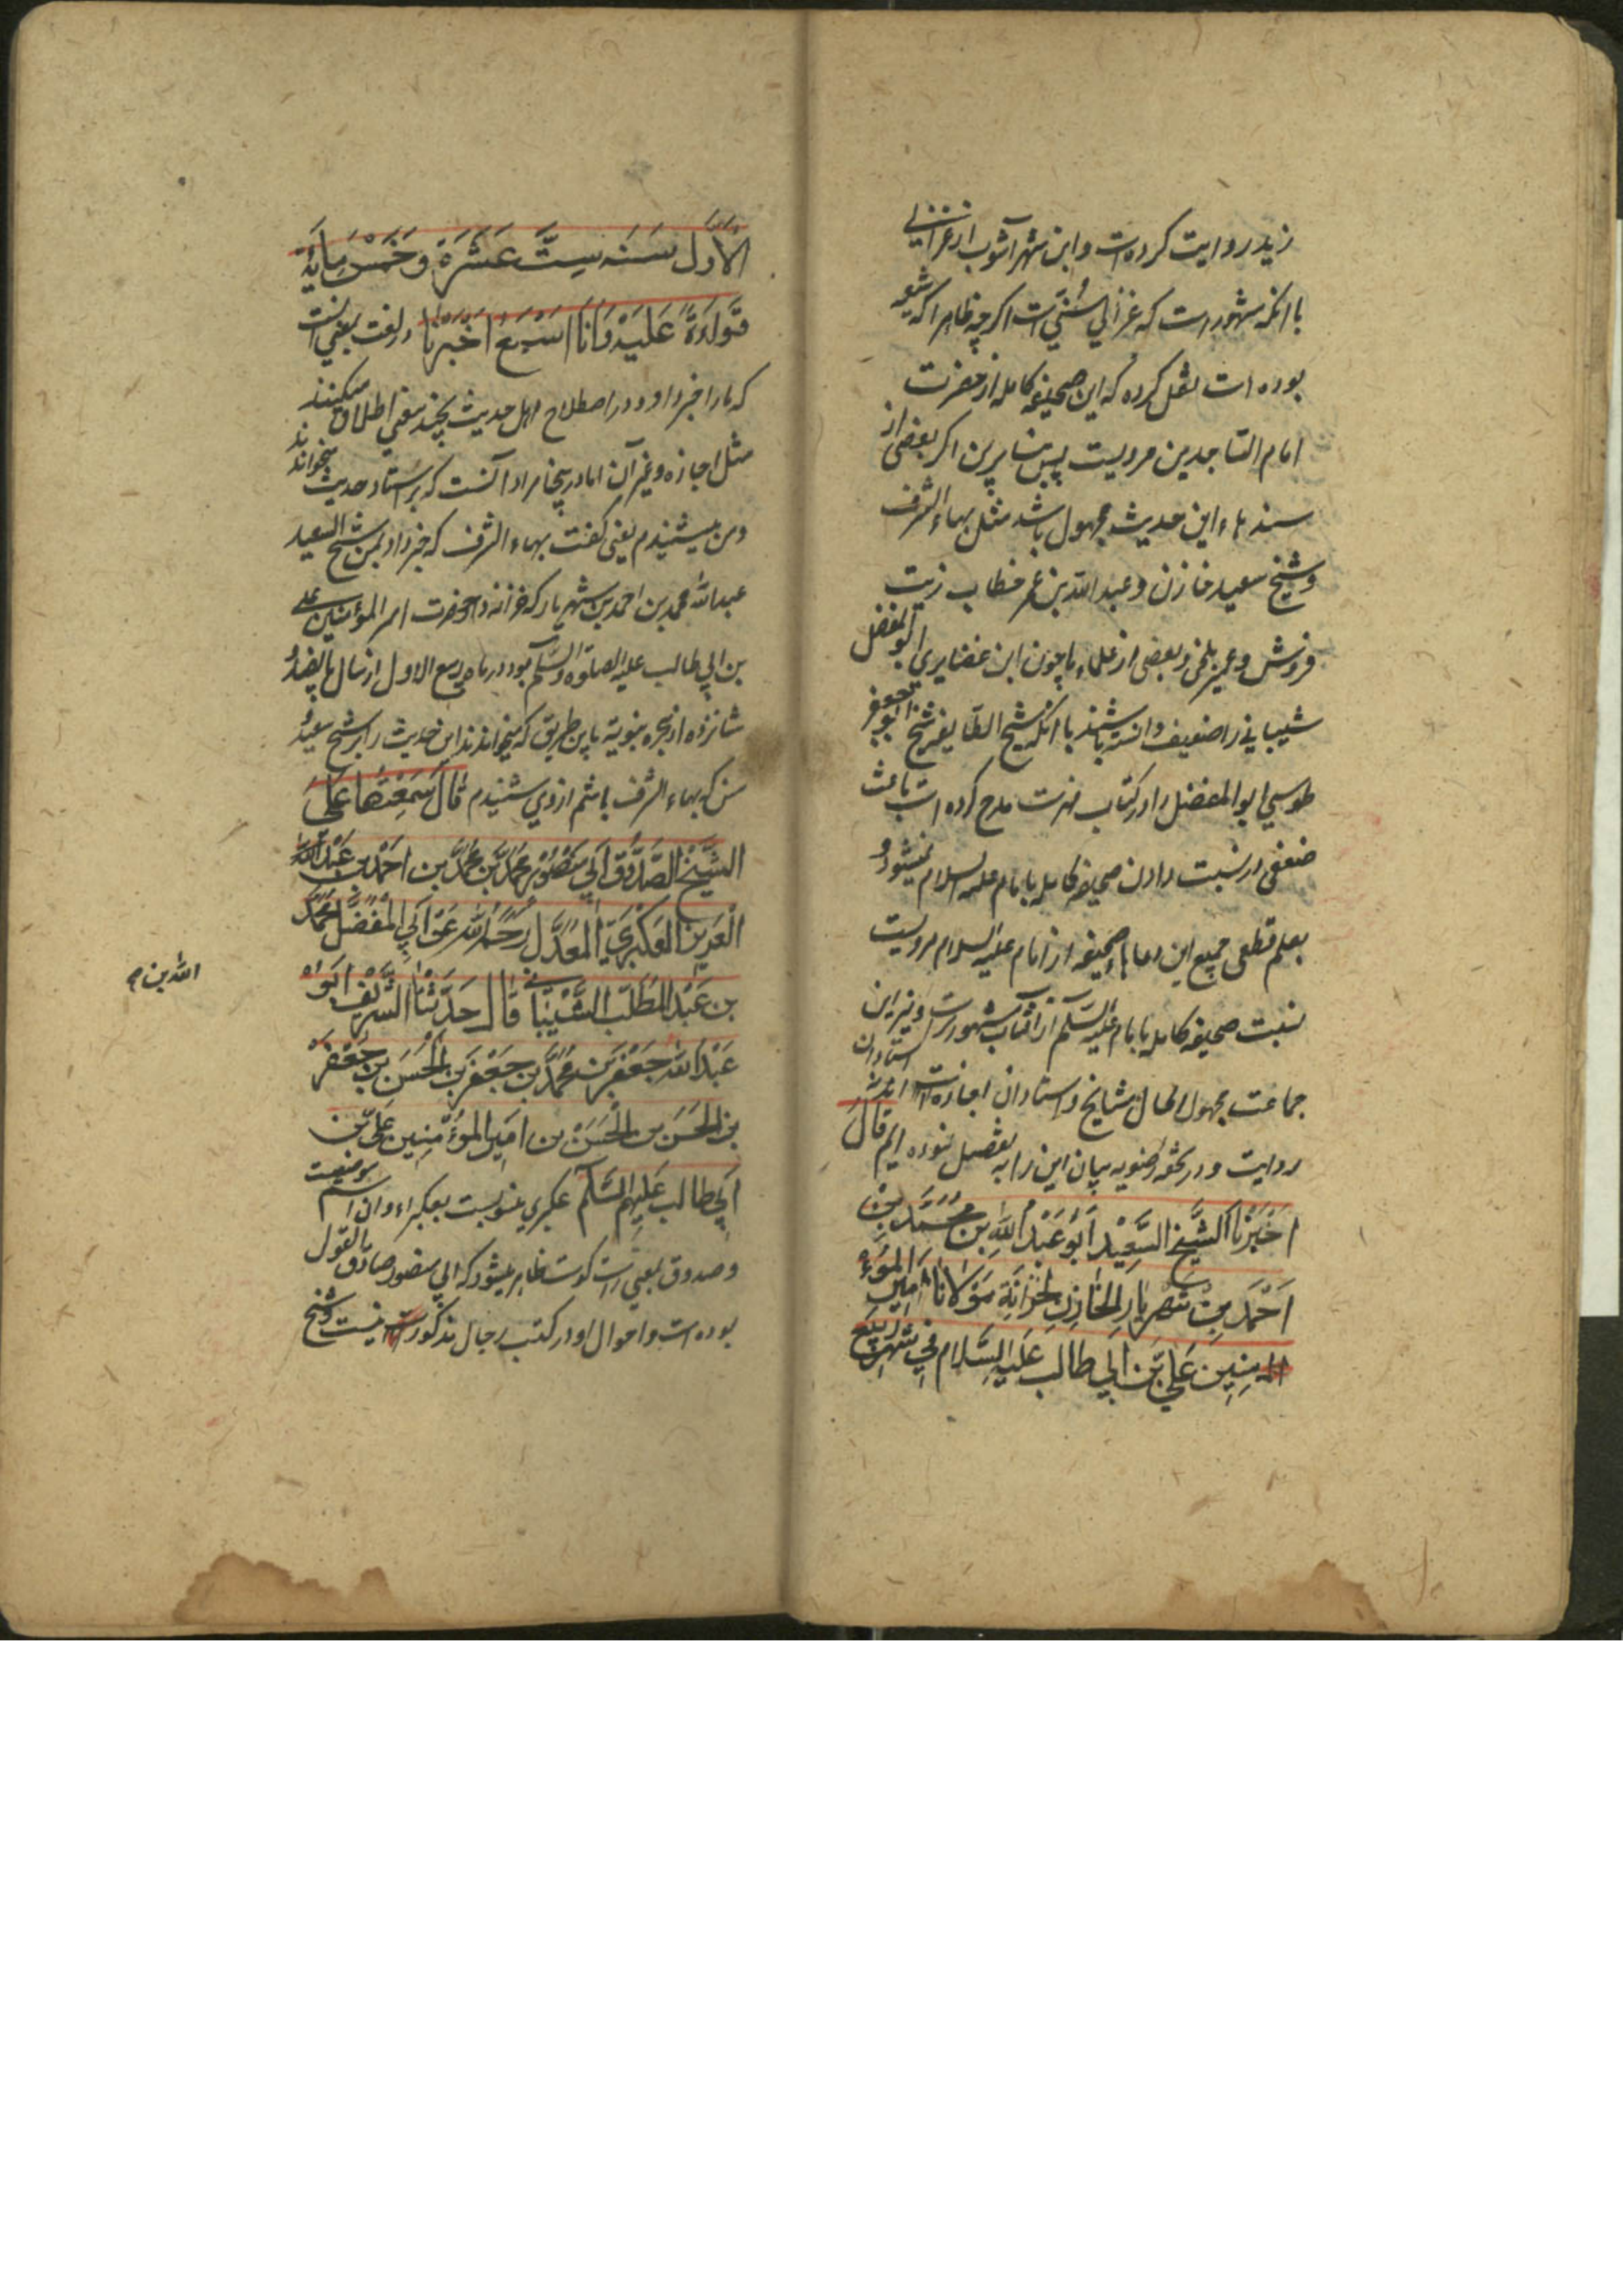 زید روایت کرده است و ابن شهر آشوب از غزالی
با انکه مشهور است که غزالی سُنّی است اکرچه ظاهرا که شیعه
بوده است نقل کرده که این صحیفه کامله از حضرت
امام الساجدین مرویست پس بنا برین اکر بعضی از
سندهاء این حدیث مجهول باشد مثل بهاء الشرف
و شیخ سعید خازن و عبد الله بن عمر خطاب زیت
فروش و عمیر بلخی و بعضی از علماء ما چون ابن غضایری ابو المفضل
شیبانی را ضعیف دانسته باشند با انکه شیخ الطایفه شیخ ابو جعفر
طوسی ابو المفضل را در کتاب فهرست مدح کرده است باعث
ضعفی در نسبت دادن صحیفه کامله بامام علیه السلام نمیشود و
بعلم قطعی جمیع این دعاهاء صحیفه از امام علیه السلام مرویست
نسبت صحیفه کامله بامام علیه السلم از افتاب مشهورترست و نیز این
جماعت مجهول الحال مشایخ و استادان اجازه‌اند نه استادان
روایت و در تحفه رضویه بیان این را به تفصیل نموده ایم قَالَ
اَخْبَرَنَا الشَّیْخُ السَّعِیْدُ اَبُوْ عَبْدُ اللهِ بْنِ مُحَمَّدِ بْنِ
اَحْمَدَ بْنِ شَهْرِیَارَ الْخَازِنِ لِخَزَانَةِ مَوْلَانَا اَمِیْنِ الْمُوءْ
المِنِیْنَ عَلِیِّ بْنِ اَبِی طَالِبٍ عَلَیْهِ السَّلَام فِی شَهْرِ رَبِیْعِ
الْاَوَّلِ سَنَه سِتَّ عَشَرَةَ وَخَمْسَ مِایَةٍ
قِرَاءَةً عَلَیْهِ وَاَنَا اَسْمَعُ اَخْبَرَنَا در لغت بمعنی انست
که ما را خبر داد و در اصطلاح اهل حدیث بچند معنی اطلاق میکنند
مثل اجازه و غیر آن اما در ینجا مراد آنست که بر استاد حدیث میخواندند
و من میشنیدم یعنی کفت بهاء الشرف که خبر داد بمن شیخ السعید
عبد الله محمد بن احمد بن شهریار که خزانه‌دار حضرت امیر المؤمنین علی
بن ابی طالب علیه الصلوة والسلم بود در ماه ربیع الاول از سال پانصد و
شانزده از هجره نبویه باین طریق که میخواندند این حدیث را بر شیخ سعید و
من که بهاء الشرف باشم از وی شنیدم قَالَ سَمِعْتُهَا عَلَی
الشَّیْخِ الصَّدُوْقِ اَبِی مَنْصُوْرٍ مُحَمَّدِ بْنِ مُحَمَّدِ بْنِ اَحْمَدَ بْنِ عَبْدِ
الْعَزِیزِ الْعَکْبَرِیِّ الْمُعَدَّلِ رَحِمَهُ اللهُ عَنْ اَبِی الْمُفَضَّلِ مُحَمَّدُ
بْنِ عَبْدِ الْمُطَلِّبِ الشَّیْبَانِی قَالَ حَدَّثَنَا الشَّرِیْفُ اَبُو
الله بن م
عَبْدُ اللهِ جَعْفَرُ بْنُ مُحَمَّدِ بْنِ جَعْفَرِ بْنِ الْحَسَنِ بْنِ جَعْفَرِ
بْنِ الْحَسَنِ بن الْحَسَنِ بن اَمِیْرِ الْمُوءْمِنِیْنَ عَلِیِّ بْنِ
اَبِی طَالِبٍ عَلَیْهِمُ السَّلَم عکبری منسوبست بعکبراء و ان اسم موضعیست
و صدوق بمعنی راست کوست ظاهر میشود که ابی منصور صادق القول
بوده است و احوال او در کتب رجال مذکور نیست و شیخ